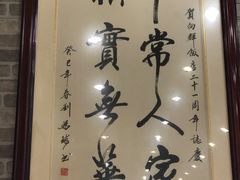 賀向群飯店二十一周年誌慶
常人家
實無華
癸巳年春劉